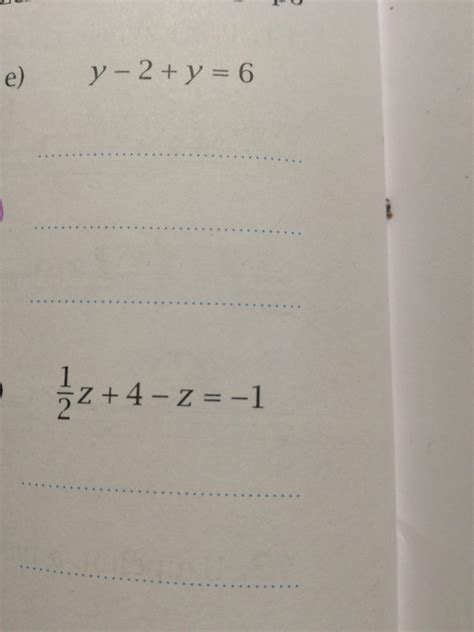 e) y − 2 + y = 6
½z + 4 − z = −1